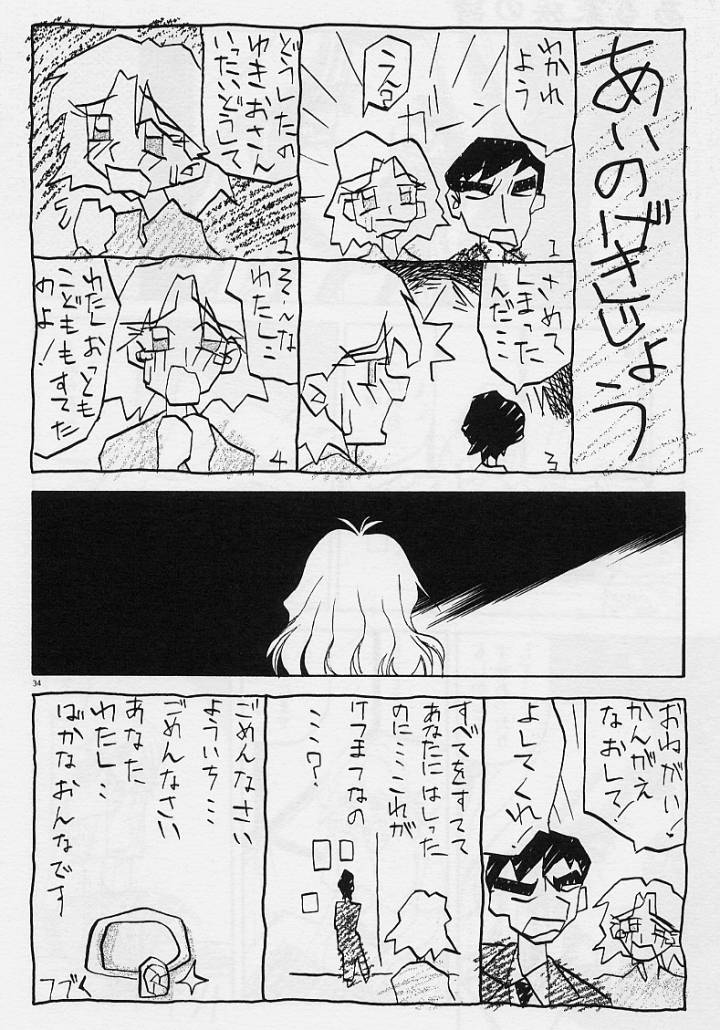 あいのごきじょう
わかれ
よう
うえ?
ガーン
1
どうしたの
ゆきおさん
いったいどうして
2
さめて
しまった
んだ…
3
そ〜んな
わたし…
わたしおっとも
こどももすてた
のよ!
4
34
おねがい!
かんがえ
なおして!
よしてくれ
すべてをすてて
あなたにはしった
のに……これが
けつまつなの
………?
ごめんなさい
よういち…
ごめんなさい
あなた
わたし…
ばかなおんなです
つづく